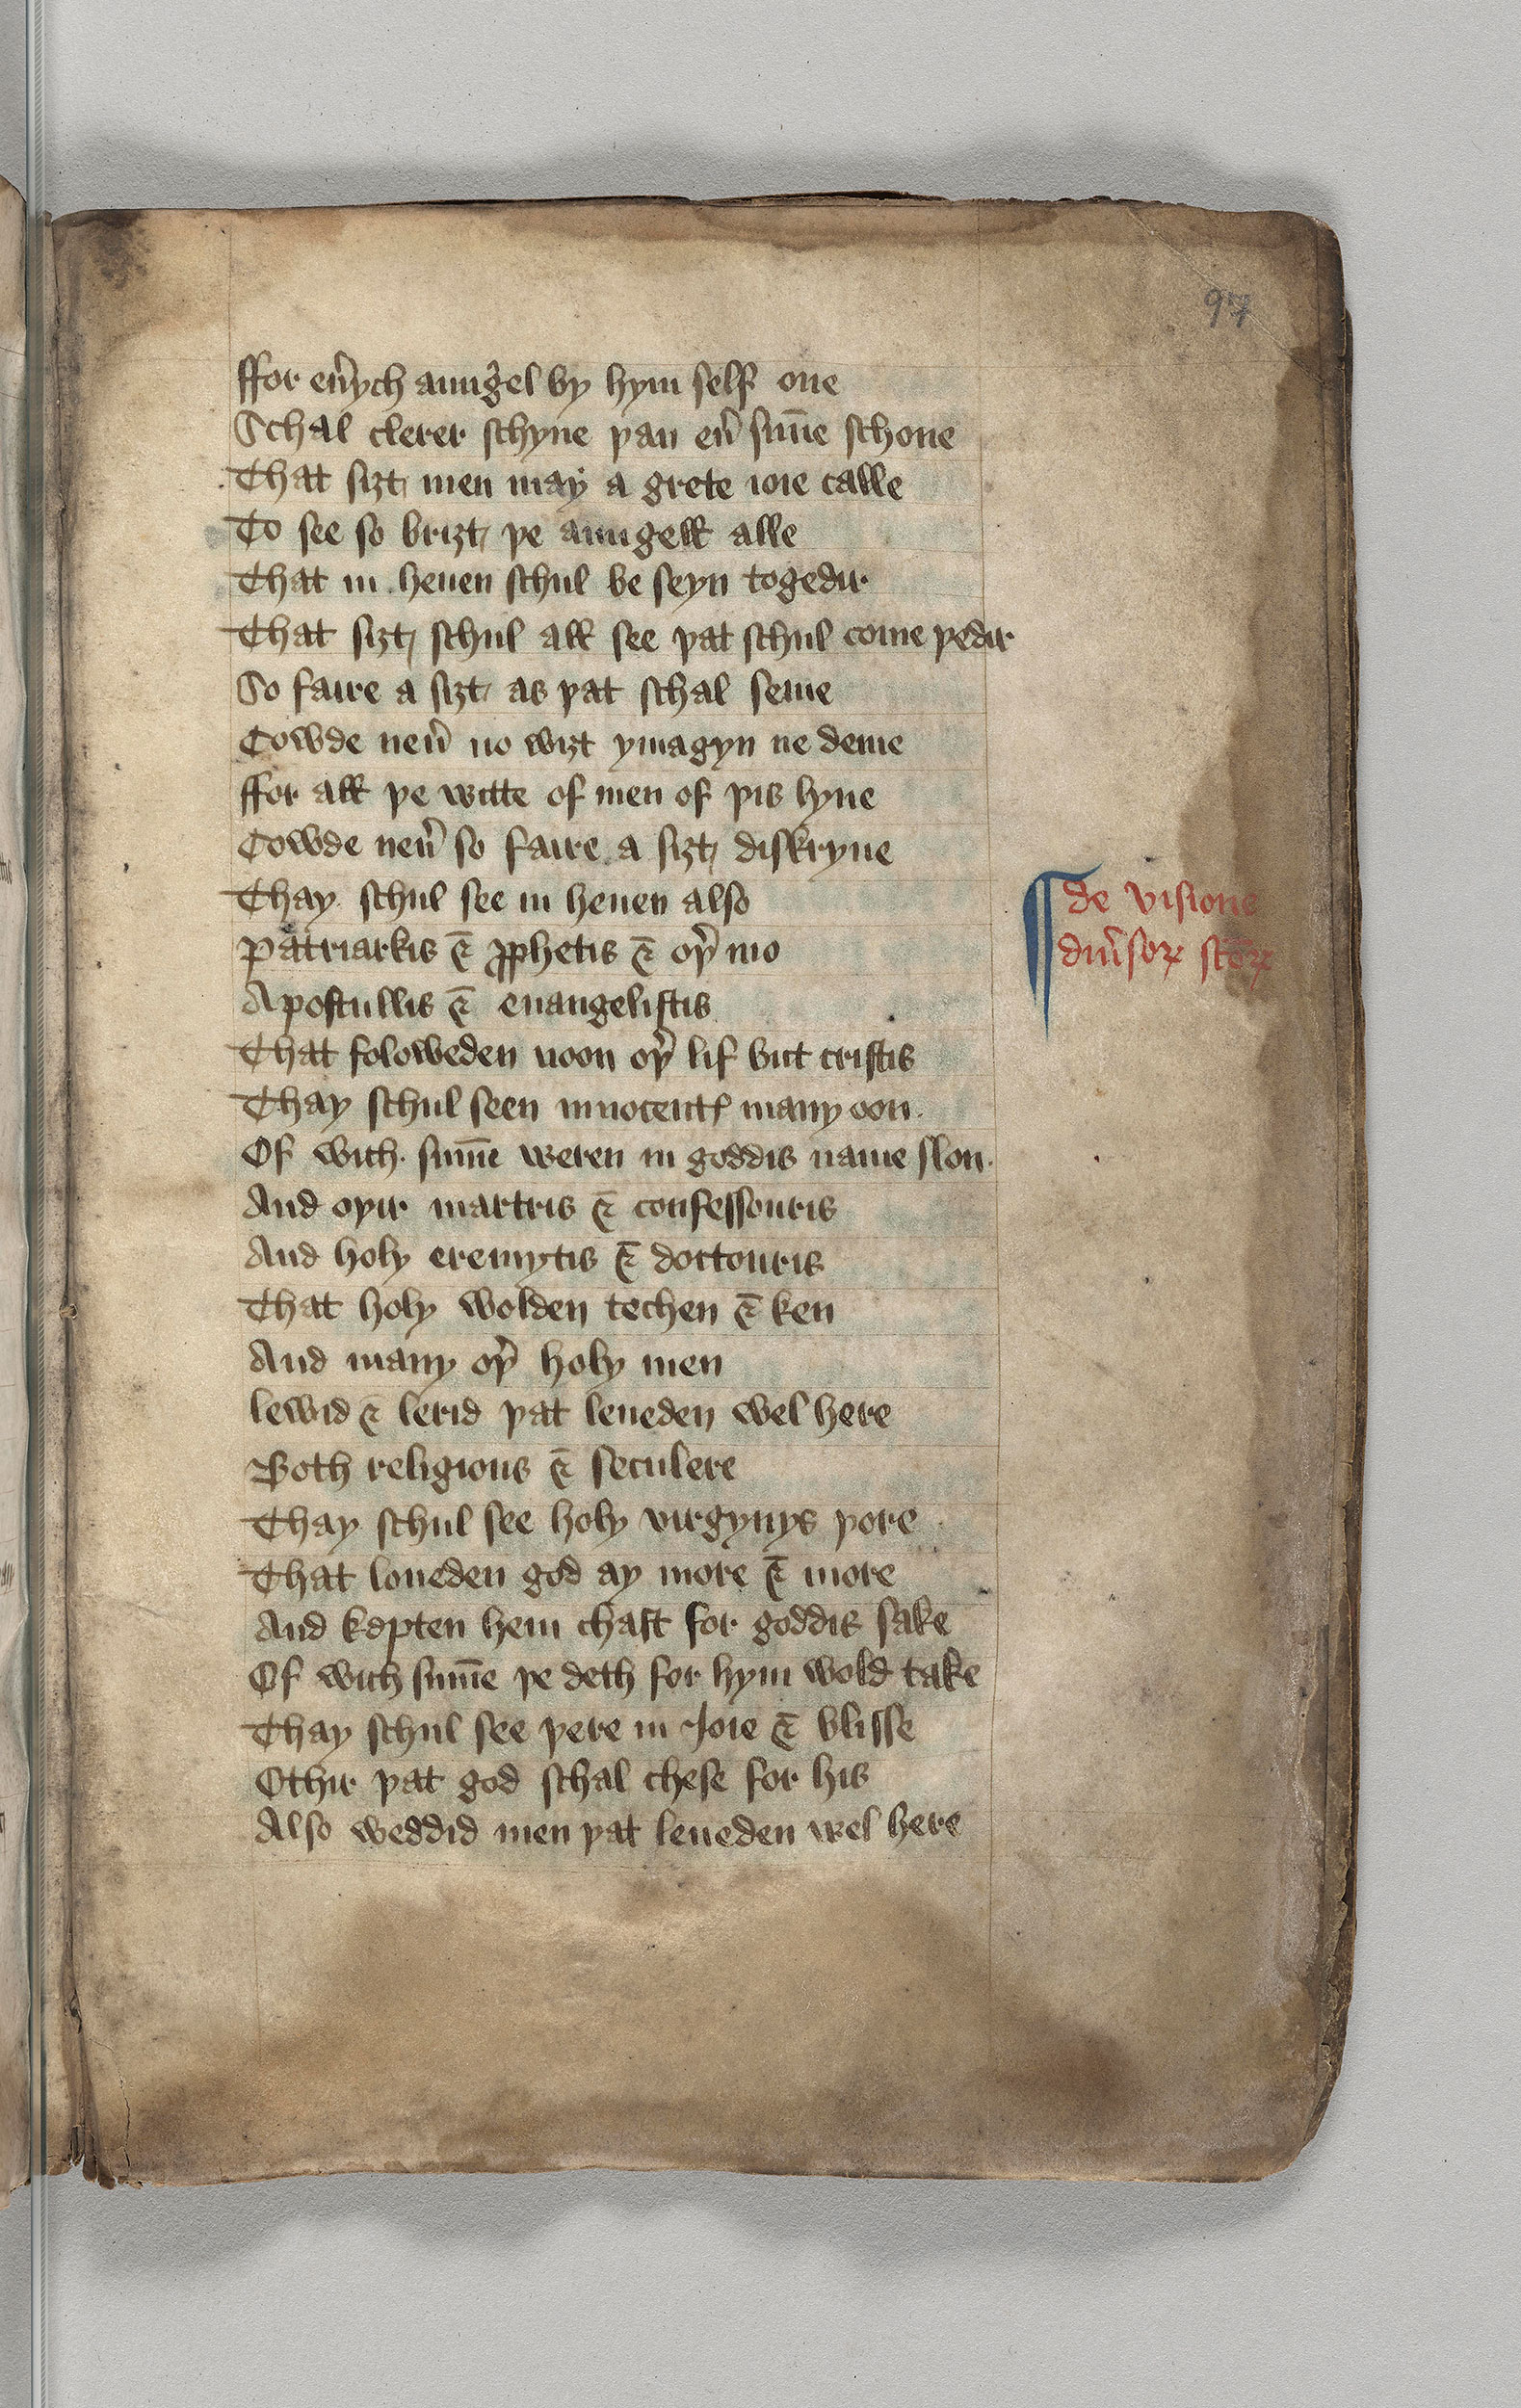 97
ffor eu̾ych aungel by hym self one
Schal clerer schyne þan eu̾ sūne schone
That siȝt men may a grete ioie calle
To see so briȝt þe aungell alle
That in heuen schul be seyn togedir
That siȝt schul all see þat schul come þedir
So faire a siȝt as þat schal seme
Cowde neu̾ no wiȝt ymagyn ne deme
ffor all þe witte of men of þis lyue
Cowde neu̾ so faire a siȝt diskryue
Thay schul see in heuen also
Patriarkis ⁊ ꝓphetis ⁊ oþ̾ mo
Apostullis ⁊ euangelistis
That foloweden noon oþ̾ lif but cristis
Thay schul seen innocentꝭ many oon
Of wich sūme weren in goddis name slon
And oþir martris ⁊ confessouris
And holy eremytis ⁊ doctouris
That holy wolden techen ⁊ ken
And many oþ̾ holy men
lewid ⁊ lerid þat leueden wel here
Both religious ⁊ seculere
Thay schul see holy virgynys þore
That loueden god ay more ⁊ more
And kepten hem chast for goddis sake
Of wich sūme þe deth for hym wold take
Thay schul see þere in Joie ⁊ blisse
Othir þat god schal chese for his
Also weddid men þat leueden wel here
de visione
diu̾soꝝ sc̄oꝝ